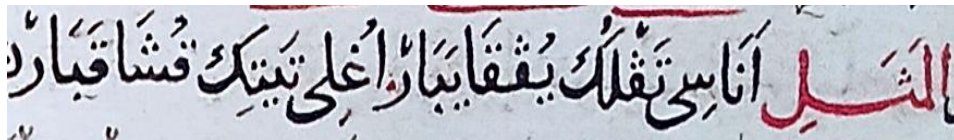 المَثَلِ اَنَا سِى تَڤْلُكْ يُڤقَا يَبَارْ اُغْلِى تَيتِكْ قُشَا قَبَارْ